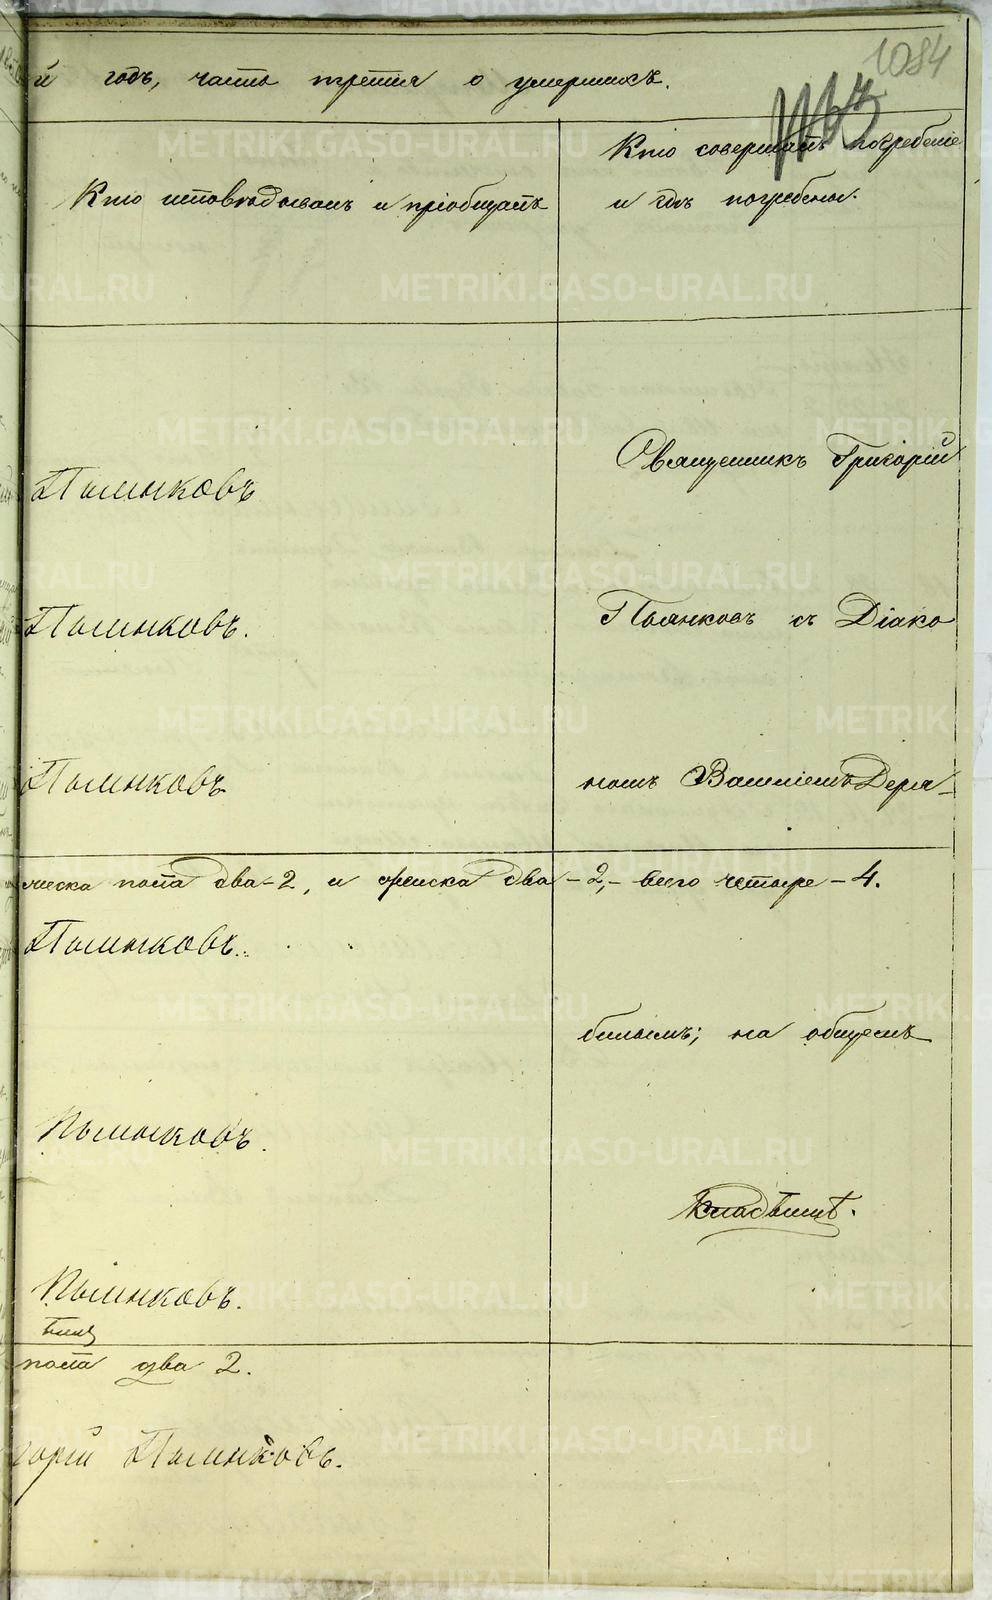 1084
й годъ, часть третья о умершихъ.
Кто исповѣдывалъ и пріобщалъ
Кто совершалъ погребеніе
и гдѣ погребены.
Священникъ Григорій
Пьянковъ
Пьянковъ.
Пьянковъ съ Діако
Пьянковъ
номъ Василіемъ Деря-
ческа пола два-2, и женска два-2,- всего четыре-4.
Пьянковъ.
бинымъ; на общемъ
Пьянковъ.
кладбищѣ.
Пьянковъ.
пола два 2.
горій Пьянковъ.
METRIKI.GASO-URAL.RU